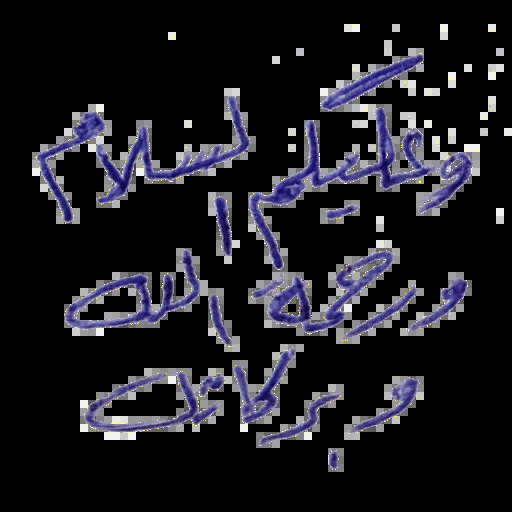 وعليكم السلام
ورحمة الله
وبركاته